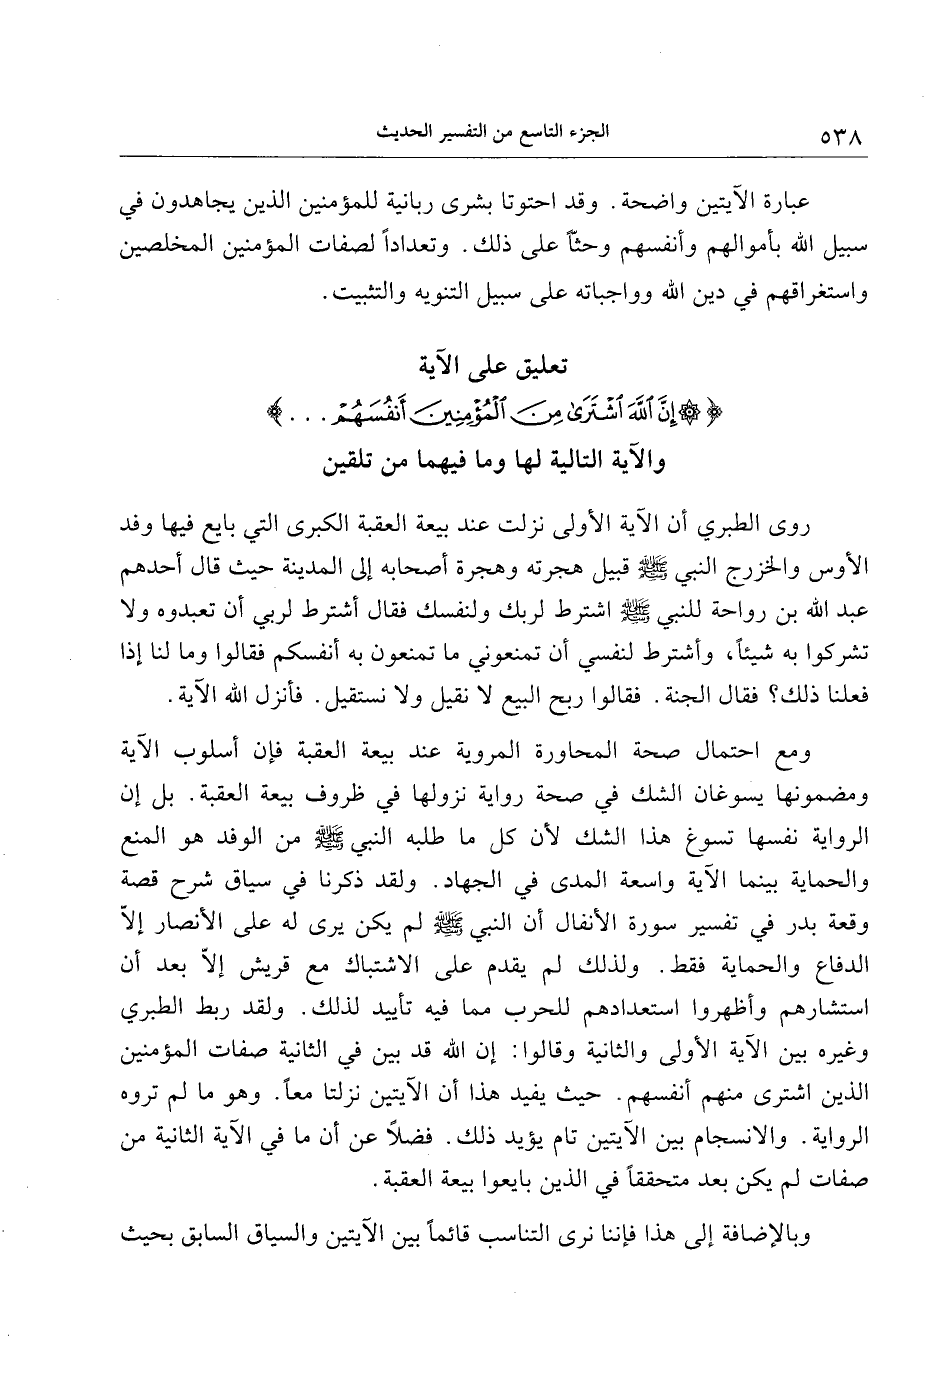 ٥٣٨ الجزء التاسع من التفسير الحديث
عبارة الآيتين واضحة. وقد احتوتا بشرى ربانية للمؤمنين الذين يجاهدون في
سبيل الله بأموالهم وأنفسهم وحثّاً على ذلك. وتعداداً لصفات المؤمنين المخلصين
واستغراقهم في دين الله وواجباته على سبيل التنويه والتثبيت.
تعليق على الآية
﴿ ۞ إِنَّ ٱللَّهَ ٱشْتَرَىٰ مِنَ ٱلْمُؤْمِنِينَ أَنفُسَهُمْ . . . ﴾
والآية التالية لها وما فيهما من تلقين
روى الطبري أن الآية الأولى نزلت عند بيعة العقبة الكبرى التي بايع فيها وفد
الأوس والخزرج النبي ﷺ قبيل هجرته وهجرة أصحابه إلى المدينة حيث قال أحدهم
عبد الله بن رواحة للنبي ﷺ اشترط لربك ولنفسك فقال أشترط لربي أن تعبدوه ولا
تشركوا به شيئاً، وأشترط لنفسي أن تمنعوني ما تمنعون به أنفسكم فقالوا وما لنا إذا
فعلنا ذلك؟ فقال الجنة. فقالوا ربح البيع لا نقيل ولا نستقيل. فأنزل الله الآية.
ومع احتمال صحة المحاورة المروية عند بيعة العقبة فإن أسلوب الآية
ومضمونها يسوغان الشك في صحة رواية نزولها في ظروف بيعة العقبة. بل إن
الرواية نفسها تسوغ هذا الشك لأن كل ما طلبه النبي ﷺ من الوفد هو المنع
والحماية بينما الآية واسعة المدى في الجهاد. ولقد ذكرنا في سياق شرح قصة
وقعة بدر في تفسير سورة الأنفال أن النبي ﷺ لم يكن يرى له على الأنصار إلاّ
الدفاع والحماية فقط. ولذلك لم يقدم على الاشتباك مع قريش إلاّ بعد أن
استشارهم وأظهروا استعدادهم للحرب مما فيه تأييد لذلك. ولقد ربط الطبري
وغيره بين الآية الأولى والثانية وقالوا: إن الله قد بين في الثانية صفات المؤمنين
الذين اشترى منهم أنفسهم. حيث يفيد هذا أن الآيتين نزلتا معاً. وهو ما لم تروه
الرواية. والانسجام بين الآيتين تام يؤيد ذلك. فضلاً عن أن ما في الآية الثانية من
صفات لم يكن بعد متحققاً في الذين بايعوا بيعة العقبة.
وبالإضافة إلى هذا فإننا نرى التناسب قائماً بين الآيتين والسياق السابق بحيث